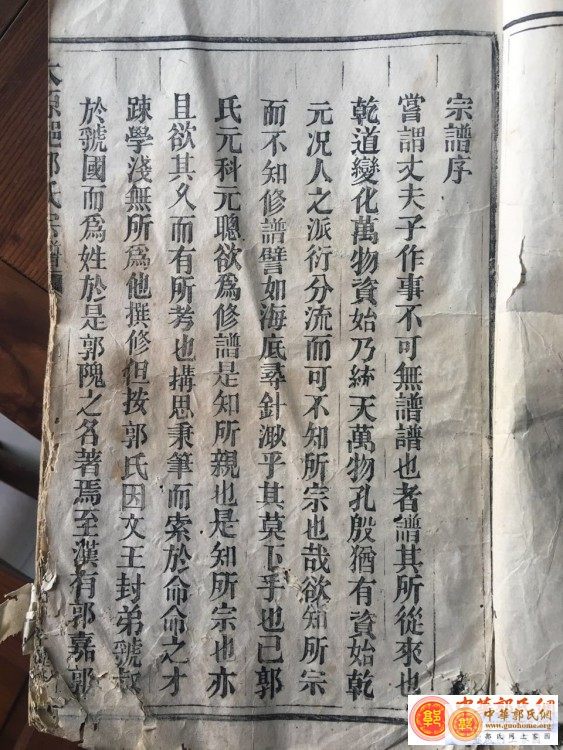 宗譜序
嘗謂丈夫子作事不可無譜譜也者譜其所從來也
乾道變化萬物資始乃統天萬物孔殷猶有資始乾
元况人之派衍分流而可不知所宗也哉欲知所宗
而不知修譜譬如海底尋針渺乎其莫下乎也已郭
氏元科元聰欲爲修譜是知所親也是知所宗也亦
且欲其久而有所考也搆思秉筆而索於命命之才
踈學淺無所爲他撰修但按郭氏因文王封弟虢叔
於虢國而爲姓於是郭隗之名著焉至漢有郭嘉郭
原郭氏宗譜
中華郭氏網
www.guohome.org
郭氏網上家園